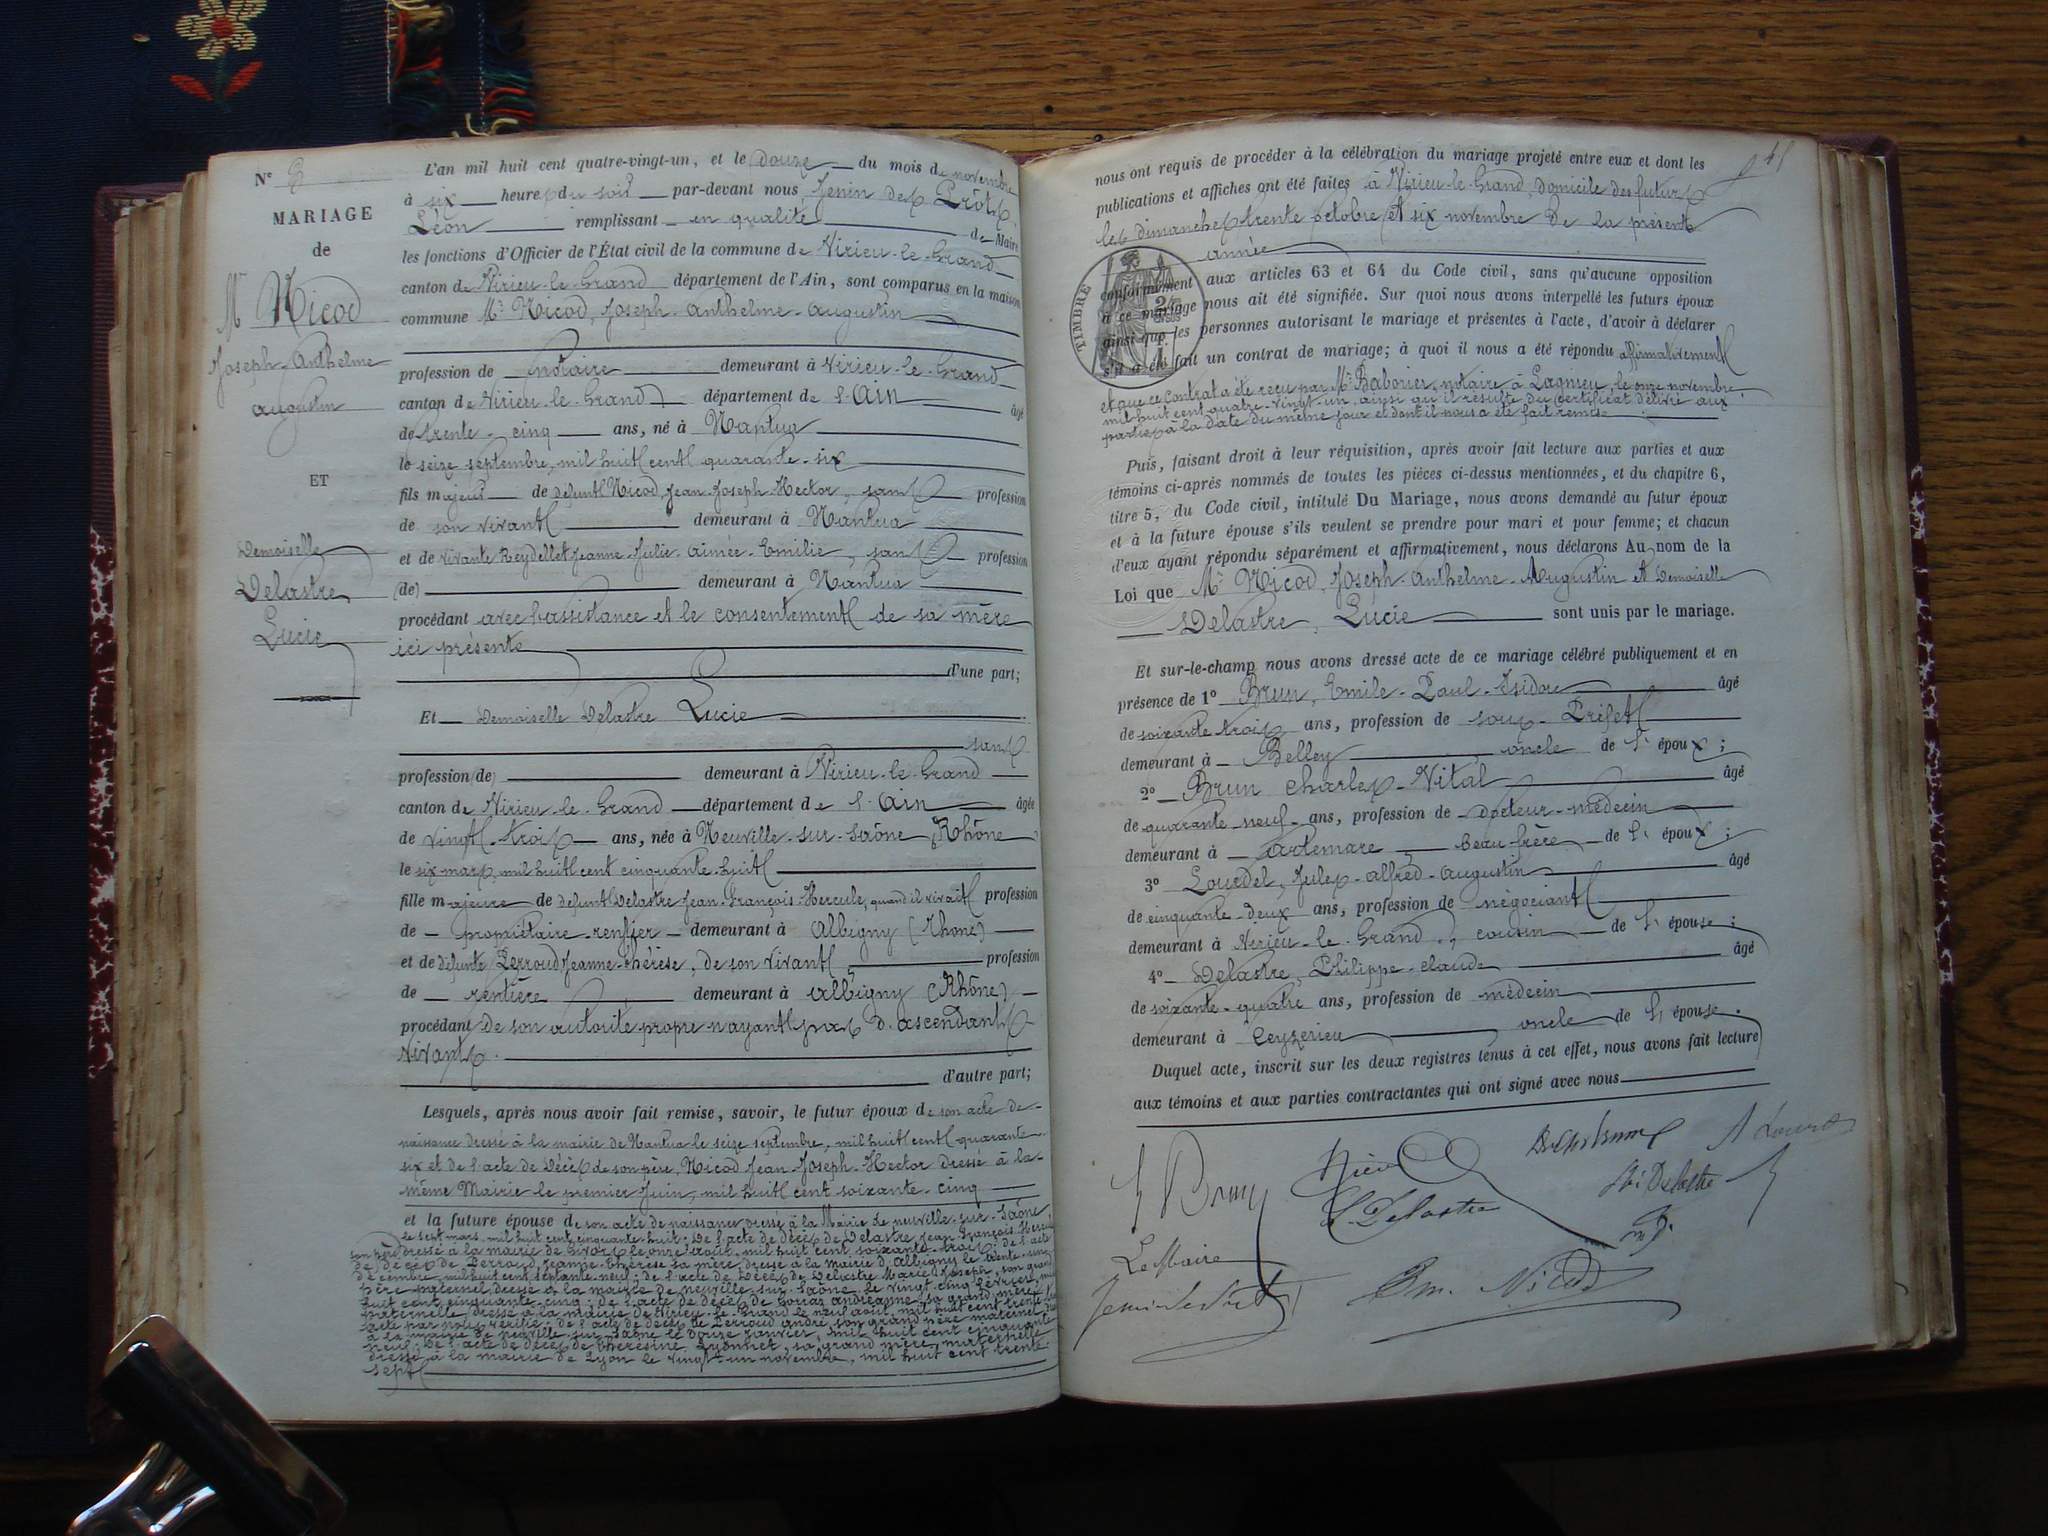 N° 8
MARIAGE
de
Mr Nicod
Joseph-Anthelme
Augustin
ET
Demoiselle
Delastre
Lucie
L'an mil huit cent quatre-vingt-un, et le douze du mois de novembre
à six heures du soir par-devant nous Jenin des Prôts,
Léon remplissant en qualité de Maire
les fonctions d'Officier de l'État civil de la commune de Virieu-le-Grand
canton de Virieu-le-Grand département de l'Ain, sont comparus en la maison
commune Mr Nicod, Joseph-Anthelme-Augustin
profession de notaire demeurant à Virieu-le-Grand
canton de Virieu-le-Grand département de l'Ain âgé
de trente-cinq ans, né à Nantua
le seize septembre, mil huit cent quarante-six
fils majeur de défunt Nicod, Jean-Joseph-Hector, sans profession
de son vivant demeurant à Nantua
et de vivante Reydellet Jeanne-Julie-Aimée-Emilie, sans profession
(de) demeurant à Nantua
procédant avec l'assistance et le consentement de sa mère
ici présente
d'une part;
Et Demoiselle Delastre Lucie
sans
profession (de) demeurant à Virieu-le-Grand
canton de Virieu-le-Grand département de l'Ain âgée
de vingt-trois ans, née à Neuville-sur-Saône (Rhône)
le six mars, mil huit cent cinquante-huit
fille majeure de défunt Delastre Jean-François-Hercule, quand il vivait profession
de propriétaire-rentier demeurant à Albigny (Rhône)
et de défunte Perroud Jeanne-Thérèse, de son vivant profession
de rentière demeurant à Albigny (Rhône)
procédant de son autorité propre n'ayant pas d'ascendants
vivants.
d'autre part;
Lesquels, après nous avoir fait remise, savoir, le futur époux de son acte de
naissance dressé à la mairie de Nantua le seize septembre, mil huit cent quarante-
six et de l'acte de décès de son père, Nicod Jean-Joseph-Hector dressé à la
même Mairie le premier Juin, mil huit cent soixante-cinq
et la future épouse de son acte de naissance dressé à la Mairie de Neuville-sur-Saône
le sept mars, mil huit cent cinquante-huit; de l'acte de décès de Delastre Jean François Hercule
son père dressé à la mairie de Givors le onze août, mil huit cent soixante-trois; de l'acte
de décès de Perroud Jeanne Thérèse sa mère dressé à la mairie d'Albigny le trente-un
décembre, mil huit cent septante-neuf; de l'acte de décès de Delastre Marie-Joseph, son grand
père paternel dressé à la mairie de Neuville-sur-Saône le vingt-cinq février, mil
huit cent cinquante-cinq; de l'acte de décès de Andréanne, sa grand mère
paternelle dressé à la mairie de Virieu-le-Grand le neuf août, mil huit cent trente
acte par nous vérifié; de l'acte de décès de Perroud André, son grand père maternel
à la mairie de Neuville-sur-Saône le douze janvier, mil huit cent cinquante
neuf; de l'acte de décès de Thérésine Lyonnet, sa grand mère maternelle
dressé à la mairie de Lyon le vingt-un novembre, mil huit cent trente-
sept
nous ont requis de procéder à la célébration du mariage projeté entre eux et dont les
publications et affiches ont été faites à Virieu-le-Grand, domicile des futurs
les dimanches trente octobre et six novembre de la présente
année
TIMBRE
2
conformément aux articles 63 et 64 du Code civil, sans qu'aucune opposition
à ce mariage nous ait été signifiée. Sur quoi nous avons interpellé les futurs époux
ainsi que les personnes autorisant le mariage et présentes à l'acte, d'avoir à déclarer
s'il a été fait un contrat de mariage; à quoi il nous a été répondu affirmativement
et que ce contrat a été reçu par Me Baboin, notaire à Lagnieu, le onze novembre
mil huit cent quatre-vingt-un, ainsi qu'il résulte du certificat délivré aux
parties à la date du même jour et dont il nous a été fait remise.
Puis, faisant droit à leur réquisition, après avoir fait lecture aux parties et aux
témoins ci-après nommés de toutes les pièces ci-dessus mentionnées, et du chapitre 6,
titre 5, du Code civil, intitulé Du Mariage, nous avons demandé au futur époux
et à la future épouse s'ils veulent se prendre pour mari et pour femme; et chacun
d'eux ayant répondu séparément et affirmativement, nous déclarons Au nom de la
Loi que Mr Nicod, Joseph-Anthelme-Augustin et Demoiselle
Delastre, Lucie sont unis par le mariage.
Et sur-le-champ nous avons dressé acte de ce mariage célébré publiquement et en
présence de 1° Brun, Emile-Paul-Isidore âgé
de soixante trois ans, profession de sous-Préfet
demeurant à Belley oncle de l'époux;
2° Brun Charles-Vital âgé
de quarante neuf ans, profession de docteur-médecin
demeurant à Artemare beau-frère de l'époux;
3° Lourdel, Jules-Alfred-Augustin âgé
de cinquante-deux ans, profession de négociant
demeurant à Virieu-le-Grand, cousin de l'épouse;
4° Delastre, Philippe-Claude âgé
de soixante-quatre ans, profession de médecin
demeurant à Ceyzérieu oncle de l'épouse.
Duquel acte, inscrit sur les deux registres tenus à cet effet, nous avons fait lecture
aux témoins et aux parties contractantes qui ont signé avec nous
Brun
Nicod
A Lourdel
L. Delastre
Phi Delastre
Le Maire
Em. Nicod